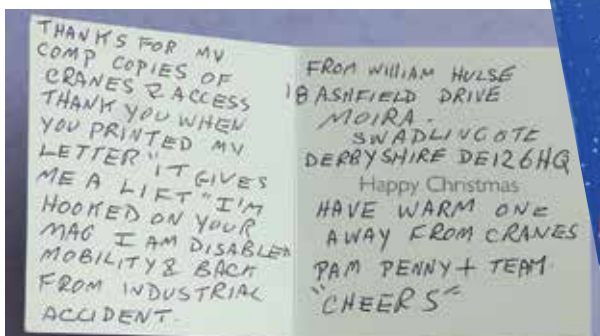 THANKS FOR MY
COMP COPIES OF
CRANES & ACCESS
THANK YOU WHEN
YOU PRINTED MY
LETTER "IT GIVES
ME A LIFT" I'M
HOOKED ON YOUR
MAG I AM DISABLED
MOBILITY & BACK
FROM INDUSTRIAL
ACCIDENT.
FROM WILLIAM HULSE
18 ASHFIELD DRIVE
MOIRA.
SWADLINCOTE
DERBYSHIRE DE126HQ
Happy Christmas
HAVE WARM ONE
AWAY FROM CRANES
PAM PENNY + TEAM.
"CHEERS"